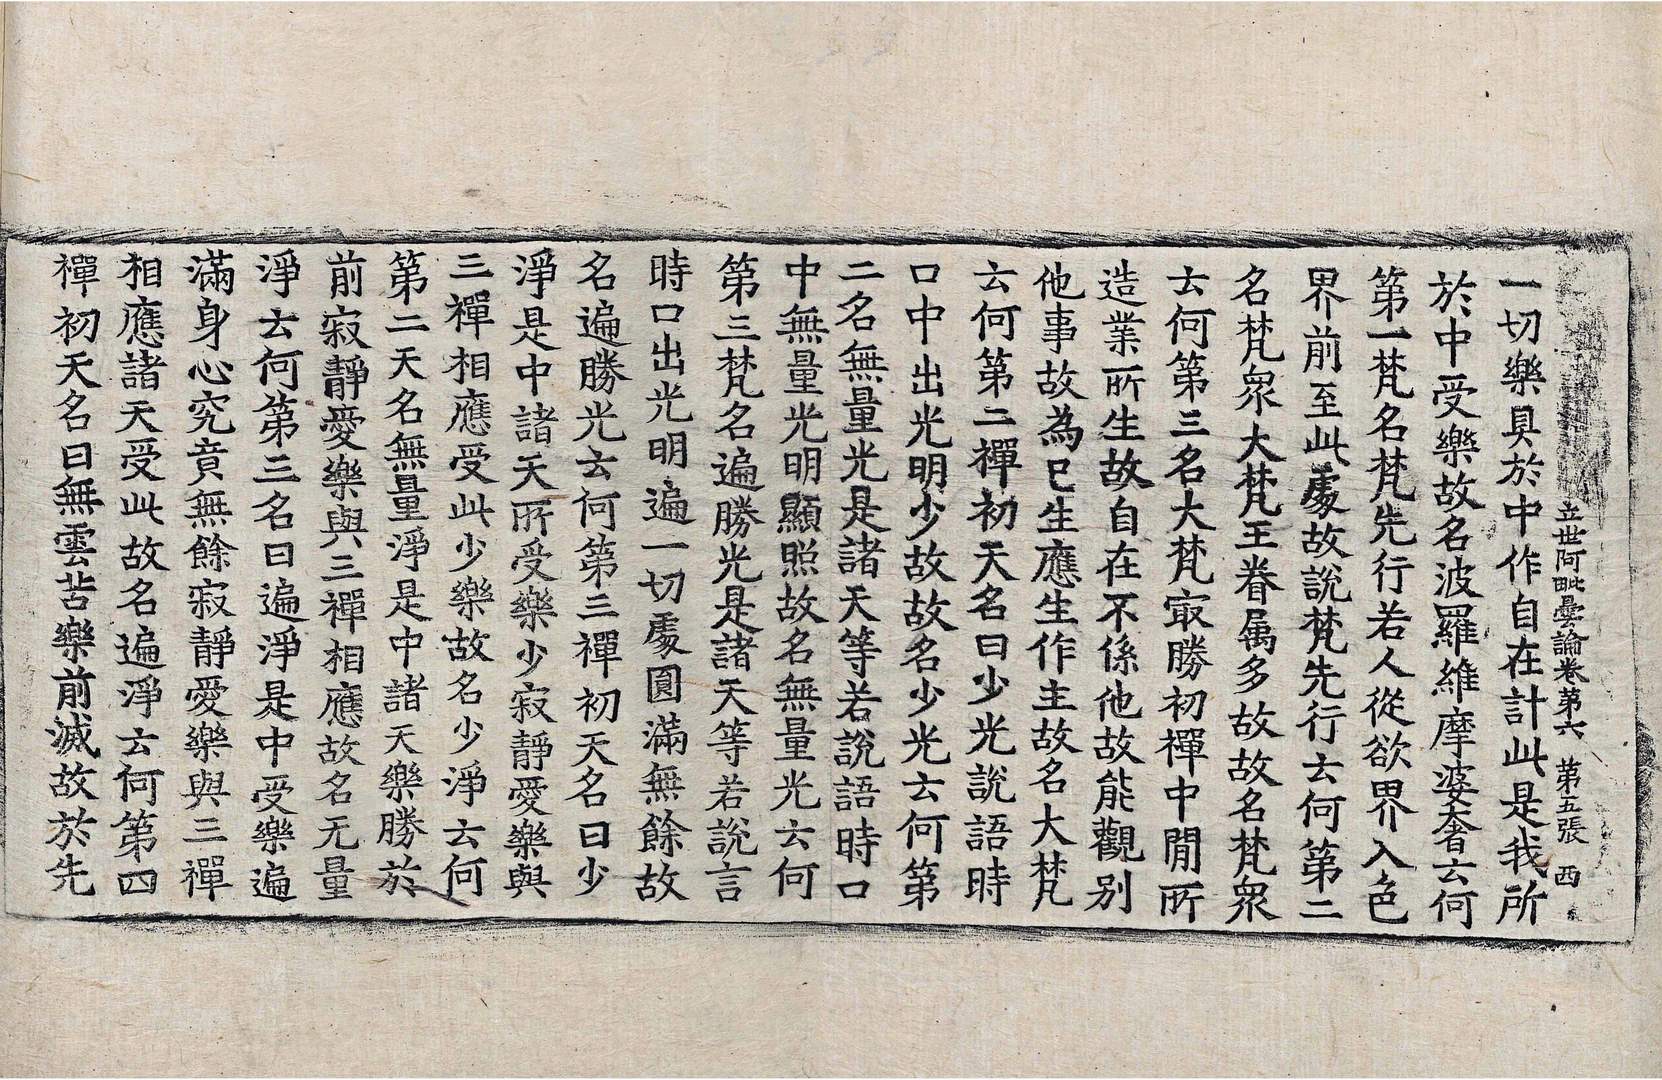 立世阿毗曇論卷第六 第五張 西
一切樂具於中作自在計此是我所
於中受樂故名波羅維摩婆奢云何
第一梵名梵先行若人從欲界入色
界前至此處故說梵先行云何第二
名梵衆大梵王眷属多故故名梵衆
云何第三名大梵㝡勝初禪中間所
造業所生故自在不係他故能觀别
他事故為已生應生作主故名大梵
云何第二禪初天名曰少光說語時
口中出光明少故故名少光云何第
二名無量光是諸天等若說語時口
中無量光明顯照故名無量光云何
第三梵名遍勝光是諸天等若說言
時口出光明遍一切處圓滿無餘故
名遍勝光云何第三禪初天名曰少
淨是中諸天所受樂少寂靜愛樂與
三禪相應受此少樂故名少淨云何
第二天名無量淨是中諸天樂勝於
前寂靜愛樂與三禪相應故名无量
淨云何第三名曰遍淨是中受樂遍
滿身心究竟無餘寂靜愛樂與三禪
相應諸天受此故名遍淨云何第四
禪初天名曰無雲苦樂前滅故於先